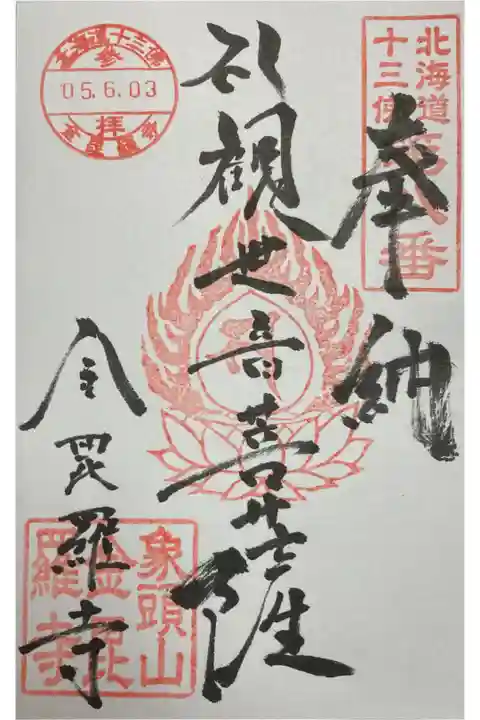 北海道
十三佛
第八番
奉納
観世音菩薩
北海道十三佛
参
05.6.03
拝
金毘羅寺
象頭山
金毘
羅寺